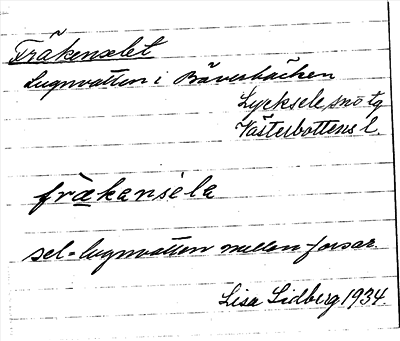 Fräkenselet
Lugnvatten i Bäverbäcken
Lycksele snö tg
Västerbottens l.
fräkansela
sel = lugnvatten mellan forsar.
Lisa Lidberg 1934.